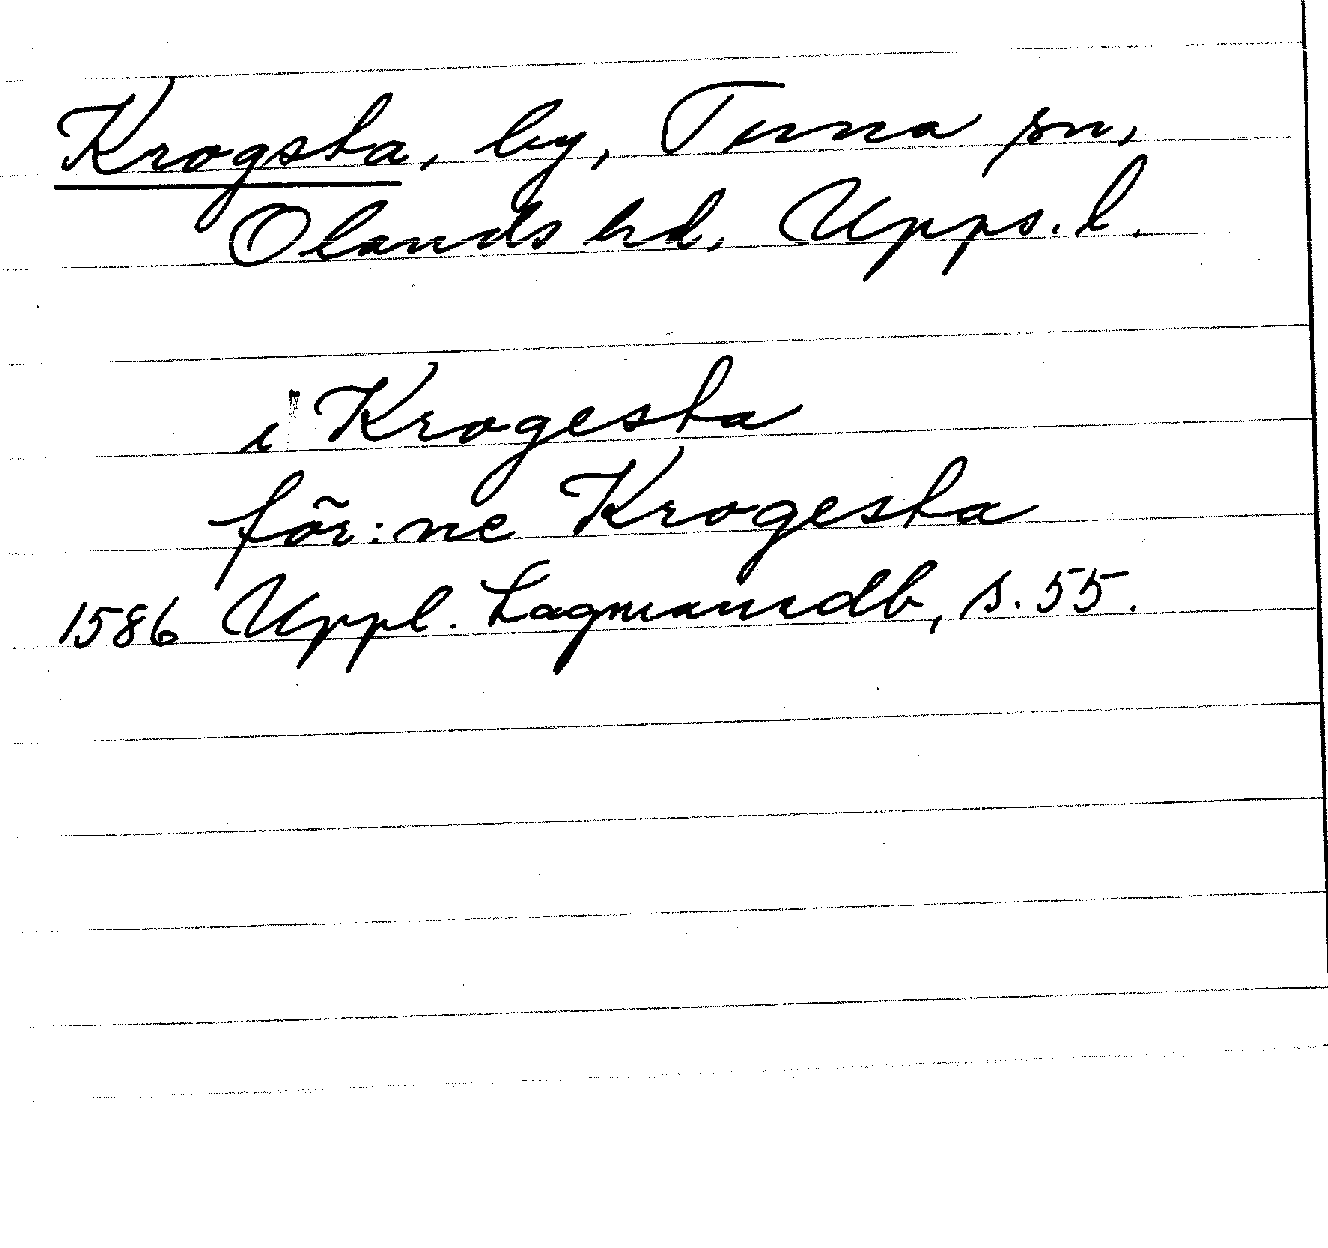 Krogsta, by, Tuna sn,
Olands hd, Upps. l.
i Krogesta
för:ne Krogesta
1586 Uppl. Lagmansdb, s. 55.